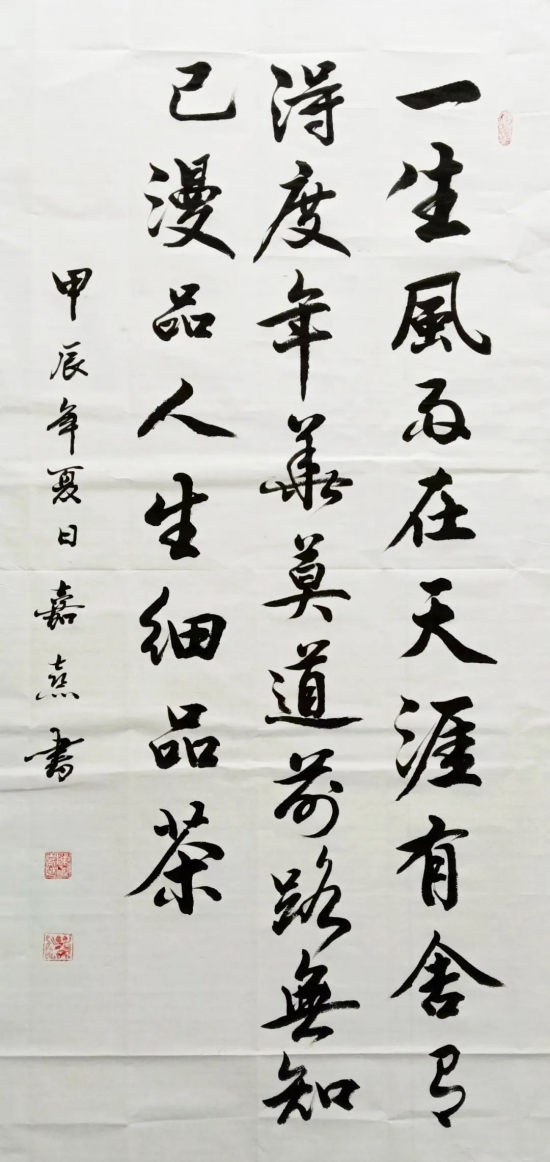 一生風雨在天涯有舍有
得度年華莫道前路無知
己漫品人生細品茶
甲辰年夏日嘉熹書